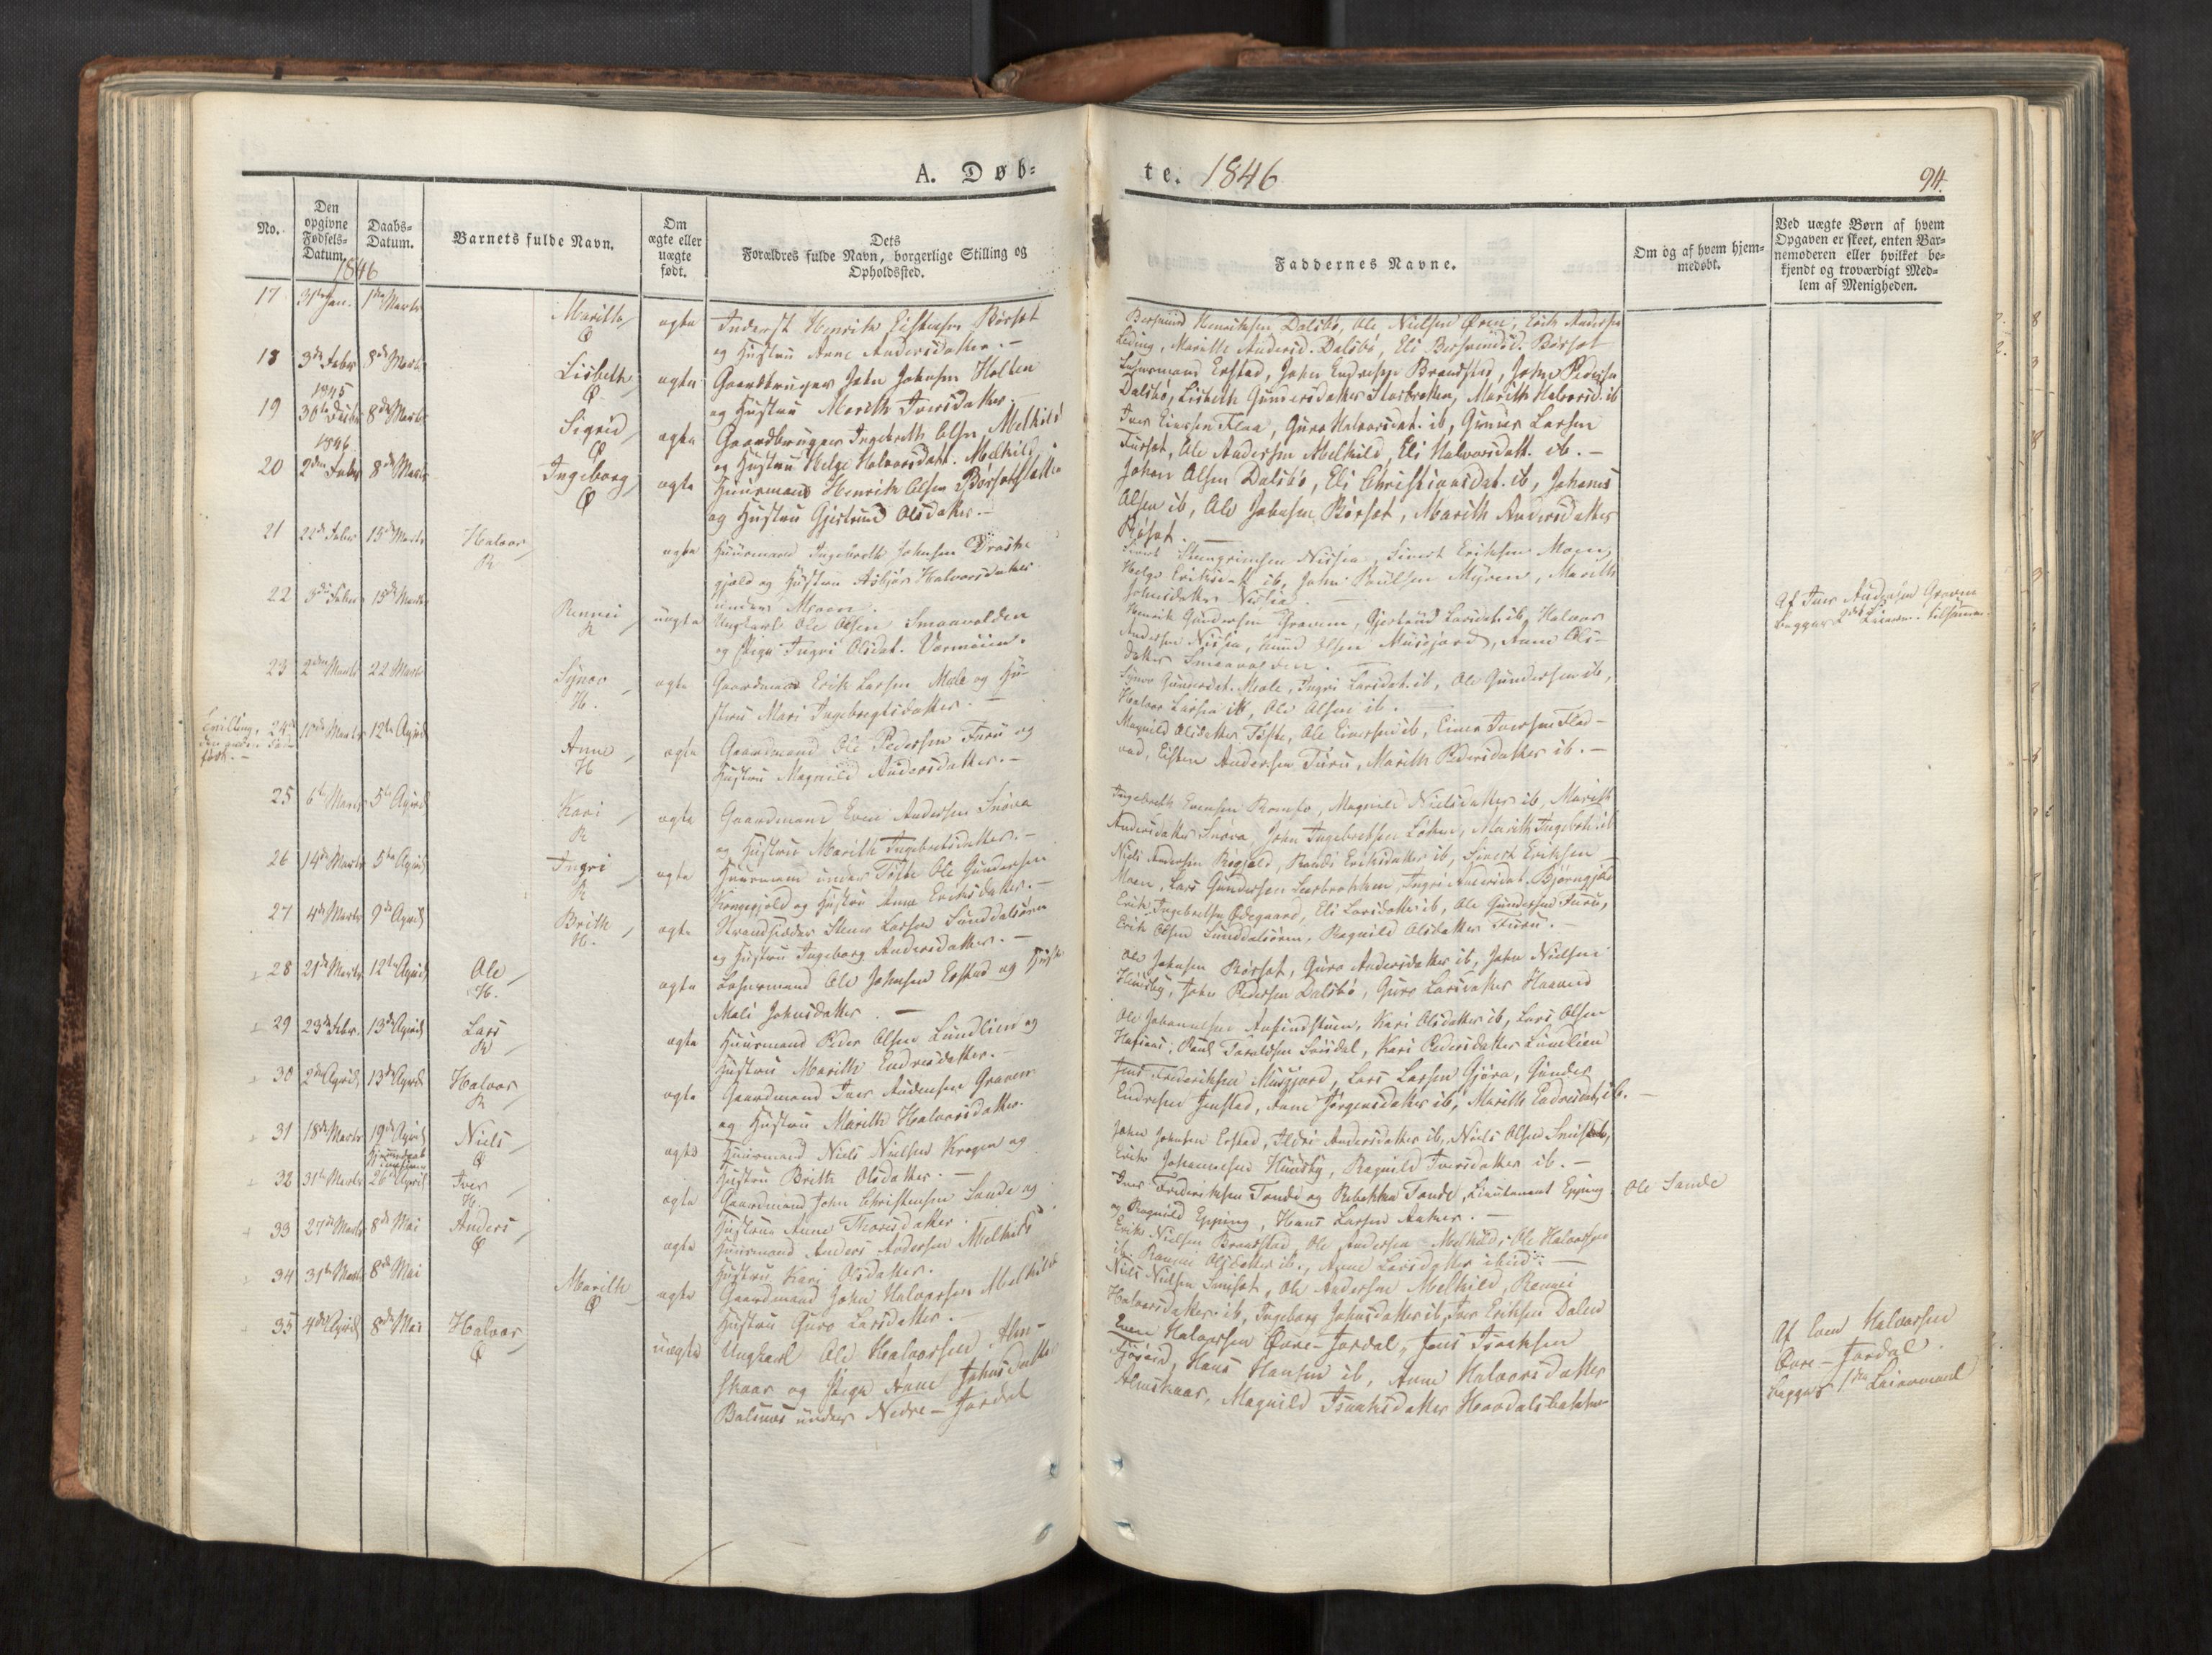 A. Døb=
te. 1846
94.
No.
Den opgivne Fødsels-Datum.
Daabs-Datum.
Barnets fulde Navn.
Om ægte eller uægte født.
Dets Forældres fulde Navn, borgerlige Stilling og Opholdssted.
Faddernes Navne.
Om og af hvem hjem-medøbt.
Ved uægte Børn af hvem
Opgaven er skeet, enten Bar-
nemoderen eller hvilket be-
kjendt og troværdigt Med-
lem af Menigheden.
1846
17 31te Jan. 1ste Marts Marith Ø ægte Inderst Henrik Eistensen Børset
og Hustru Anne Andersdatter.-
Bersvend Henriksen Dalsbø, Ole Nielsen Øren, Erik Andersen
Marith Andersd. Dalsbø, Eli Bersvendsd. Børset
18 3die Febr 8de Marts Lisbeth Ø ægte Gaardbruger John Johnsen Holten
og Hustru Marith Iversdatter.-
Erstad, John Endresen Brandstad, John Pedersen
Dalsbø, Lisbeth Gundersdatter, Marith Halvorsd. ib
1845
19 30te Decbr 8de Marts Sigrid Ø ægte Gaardbruger Ingebreth Olsen Melkild
og Hustru Helge Halvorsdatt. Melkild
Iver Einersen Flaa, Guro Halvorsdat. ib, Gunner Larsen
Furset, Ole Andersen Melkild, Eli Halvorsdatt. ib.-
1846
20 2den Febr 8de Marts Ingeborg Ø ægte Huusmand Henrik Olsen
og Hustru Gjertrud Olsdatter.-
Johan Olsen Dalsbø, Eli Christiansdat. ib, Johannes
Olsen ib, Ole Johnsen Børset, Marith Andersdatter
Børset.-
21 22de Febr 15de Marts Halvor R ægte Huusmand Ingebreth Johnsen
gjeld og Hustru Asbjør Halvorsdatter
under Moen.
Sivert Steengrimsen Nisja, Sivert Eriksen Moen,
Helge Eriksdat. ib, John Poulsen Myren, Marith
Johnsdatter Nisja.-
22 3die Febr 15de Marts Rønnei R uægte Ungkarl Ole Olsen Smaavolden
og Pige Ingri Olsdat. Vermøien.
Henrik Gundersen Gravem, Gjertrud Larsdat. ib, Halvor
Andersen Nisja, Knud Olsen Musgjerd, Anne Ols-
datter Smaavolden.
Af Iver Andersen Gravem
begges 2det Leiermaal tilsammen
23 2den Marts 22 Marts Synøv H. ægte Gaardmand Erik Larsen Mæle og Hu-
stru Mari Ingebregtsdatter.-
Synøv Gundersdt. Mæle, Ingri Larsdat. ib, Ole Gundersen ib,
Halvor Larsen ib, Ole Olsen ib.
Tvilling, den anden død-
født.-
24 10de Marts 12te April Anne H ægte Gaardmand Ole Pedersen Furu og
Hustru Magnild Andersdatter.-
Magnild Olsdatter Tofte, Ole Einersen ib, Einer Iversen Flad-
vad, Eisten Andersen Furu, Marith Pedersdatter ib.-
25 6te Marts 5te April Kari R ægte Gaardmand Even Andersen Snøva
og Hustru Marith Ingebrethsdatter.-
Ingebreth Evensen Romfo, Magnild Nielsdatter ib, Marith
Andersdatter Snøva, John Ingebrethsen, Marith Ingebrthsd. ib
26 14de Marts 5te April Ingri R ægte Huusmand under Tofte Ole Gundersen
Kongsgjeld og Hustru Anne Eriksdatter.-
Niels Andersen, Randi Eriksdatter ib, Sivert Eriksen
Moen, Lars Gundersen, Ingri Andersdat. Bjørngjeld
27 4de Marts 9de April Brith H. ægte Strandsidder Stener Larsen Sunddalsøren
og Hustru Ingeborg Andersdatter.-
Erik Ingebrethsen Ødegaard, Eli Larsdatter ib, Ole Gundersen Furu,
Erik Olsen Sunddalsøren, Ragnild Olsdatter Furu.-
28 21de Marts 12te April Ole H. ægte Ole Johnsen Erstad og Hustr.
Mali Johnsdatter.-
Ole Johnsen Børset, Guro Andersdatter ib, John Nielsen
Huusby, John Pedersen Dalsbø, Guro Larsdatter
29 23de Febr. 13de April Lars R ægte Huusmand Peder Olsen Lundlien og
Hustru Marith Endresdatter.-
Ole Johannesen, Kari Olsdatter ib, Lars Olsen
Hafsaas, Poul, Kari Pedersdatter Lundlien
30 2den April 13de April Halvor R ægte Gaardmand Iver Andersen Gravem
og Hustru Marith Halvorsdatter.
Jens Frederiksen Musgjerd, Lars Larsen Gjøra, Gunder
Endresen Jenstad, Anne Jørgensdatter ib, Marith Endresdat. ib.-
31 18de Marts 19de April Niels Ø ægte Huusmand Niels Nielsen Krogen og
Hustru Brith Olsdatter.-
John Johnsen Erstad, Andersdatter ib, Niels Olsen,
Erik Johannesen Huusby, Ragnild Iversdatter ib.-
32 31te Marts 26de April Iver H. ægte Gaardmand John Christensen Sande og
Hustru Anne Thorsdatter
Iver Frederiksen Tonde og Rebekka Tonde, Lieutenant Epping
og Ragnild Epping, Hans Larsen.-
Ole Sande
33 27de Marts 8de Mai Anders Ø ægte Huusmand Anders Andersen Melkild
Hustru Kari Olsdatter.
Erik Nielsen Brandstad, Ole Andersen Melkild, Ole Halvorsen
ib. Rønnei Olsdatter ib., Anne Larsdatter ibid.-
34 31te Marts 8de Mai Marith Ø ægte Gaardmand John Halvorsen Melkild
Hustru Guro Larsdatter.-
Niels Nielsen, Ole Andersen Melkild, Rønnei
Halvorsdatter ib, Ingeborg Johnsdatter ib, Iver Eriksen Dalen
35 4de April 8de Mai Halvor Ø uægte Ungkarl Ole Halvorsen Alm-
skaar og Pige Anne Johnsdatter
Balsnes under Nedre-Jordal
Even Halvorsen Øvre-Jordal, Jens Isaksen
Fjøseid, Hans Hansen ib, Anne Halvorsdatter
Almskaar, Magnild Isaksdatter Hovdalsbakken
Af Even Halvorsen
Øvre-Jordal
begges 1ste Leiermaal